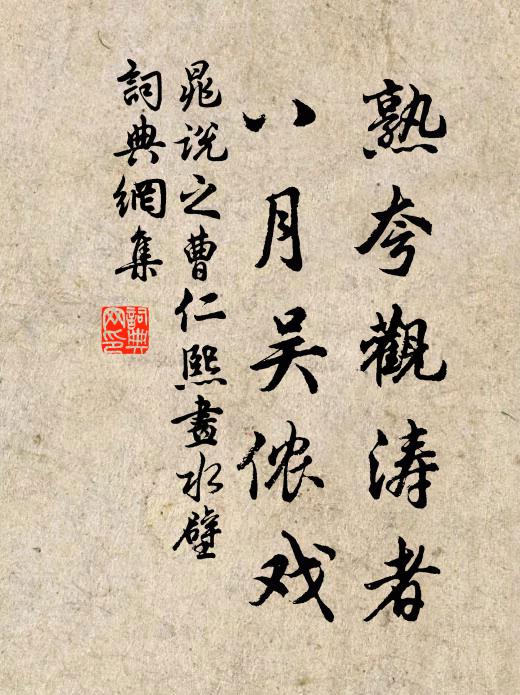 熟夸觀涛者
八月吴侬戏
晁说之曹仁熙畫水壁
詞典網集
詞典网印